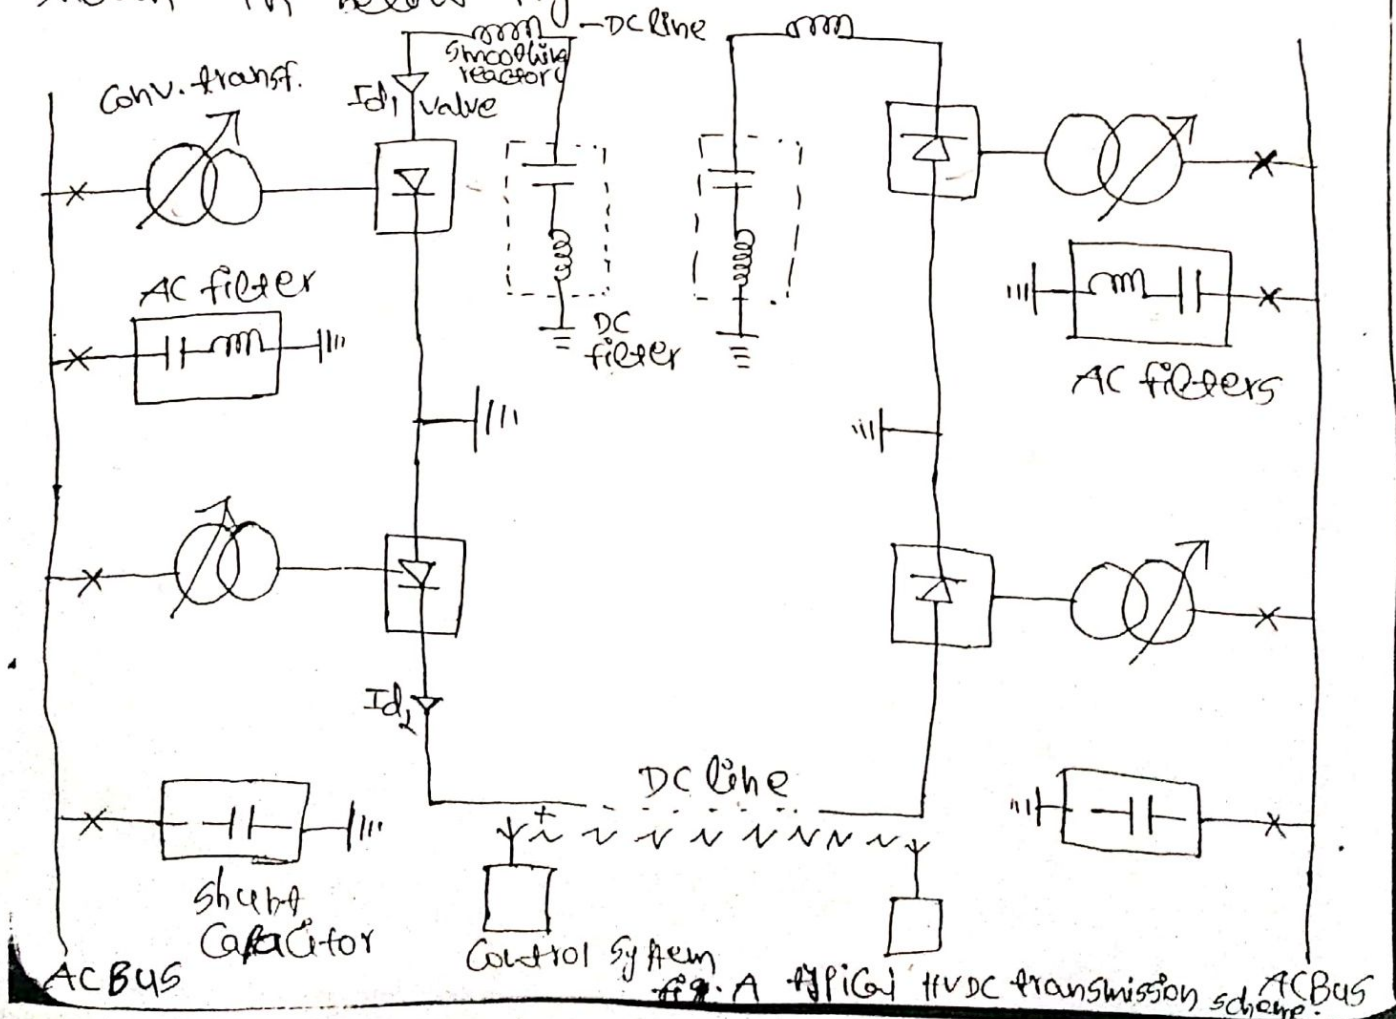 - DC line
Smoothing
reactor
Conv. transf.
Id1
valve
AC filter
DC
filter
AC filters
Id2
DC line
+
Shunt
Capacitor
Control System
AC BUS
fig. A typical HVDC transmission scheme.
AC Bus